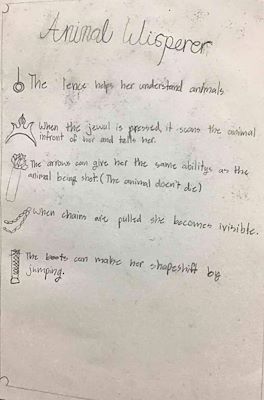 Animal Wisperer
The lence helps her understand animals
When the jewal is pressed, it scans the animal
infront of her and tells her.
The arrows can give her the same abilitys as the
animal being shot. (The animal doen't die)
When chains are pulled she becomes ivisible.
The boots can make her shapeshift by
jumping.